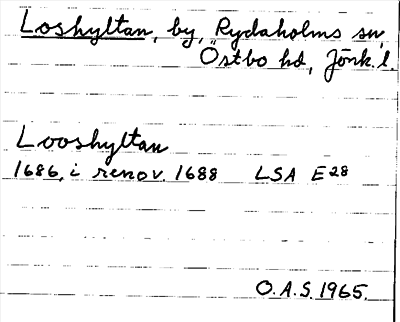 Loshyltan, by, Rydaholms sn,
Östbo hd, Jönk. l.
Looshyltan
1686, i renov. 1688 LSA E28
O.A.S. 1965.